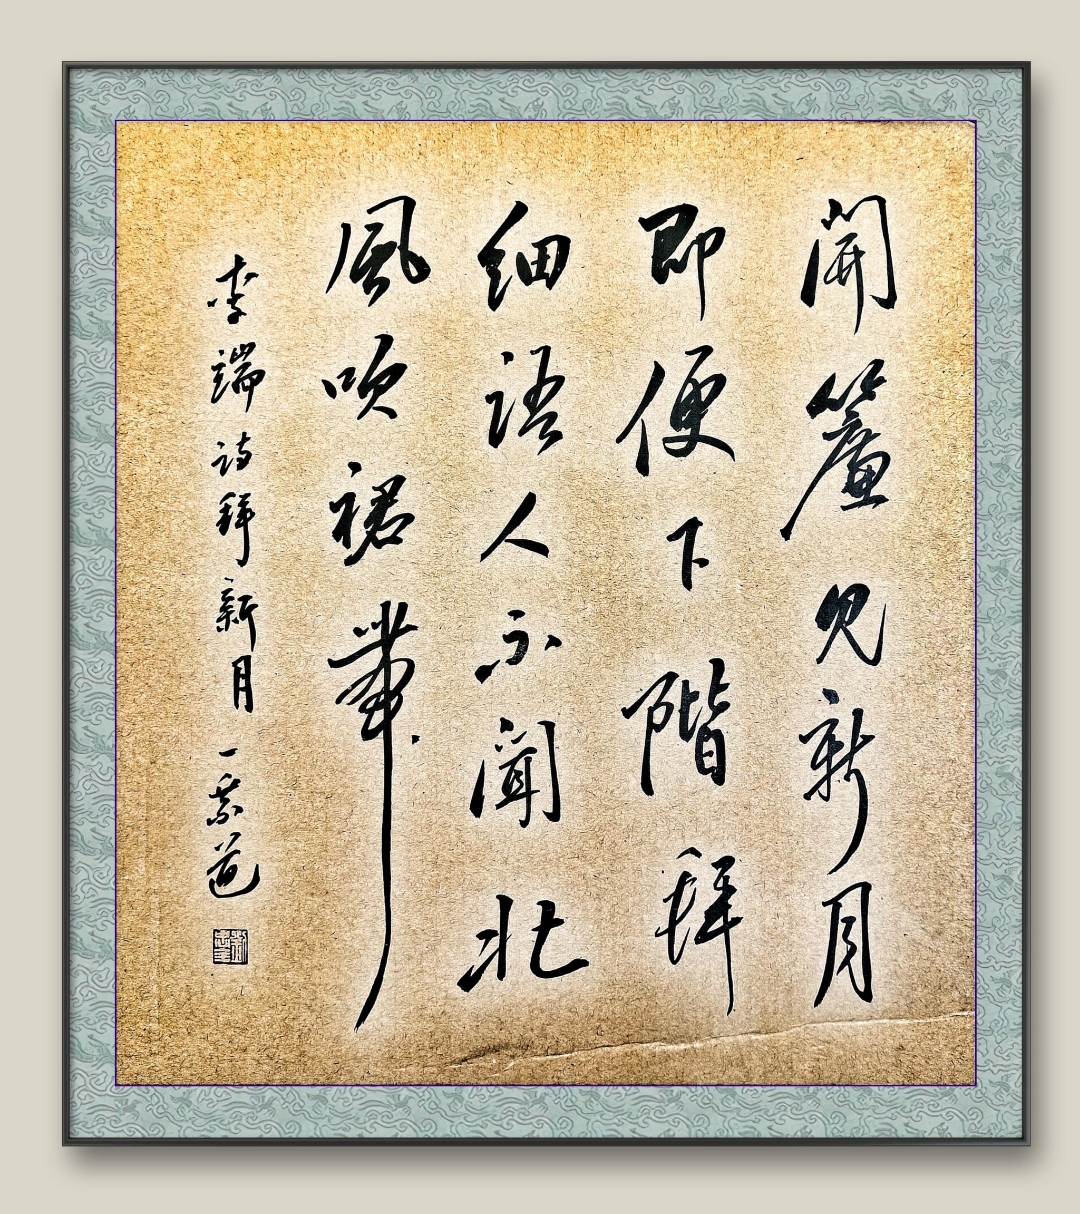 開簾見新月
即便下階拜
細語人不聞北
風吹裙帶
李端詩拜新月一